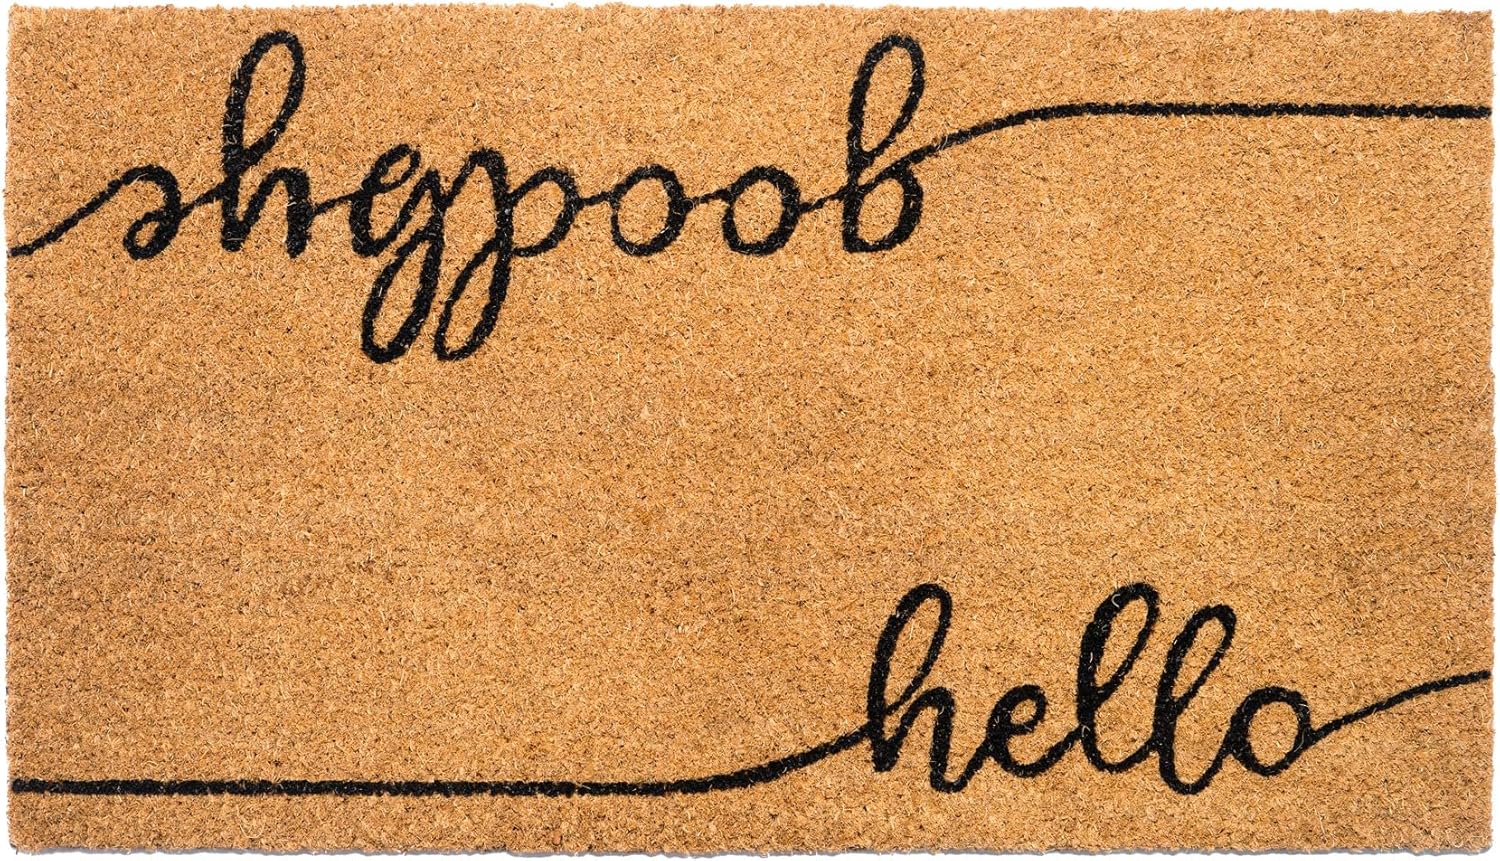 goodbye
hello